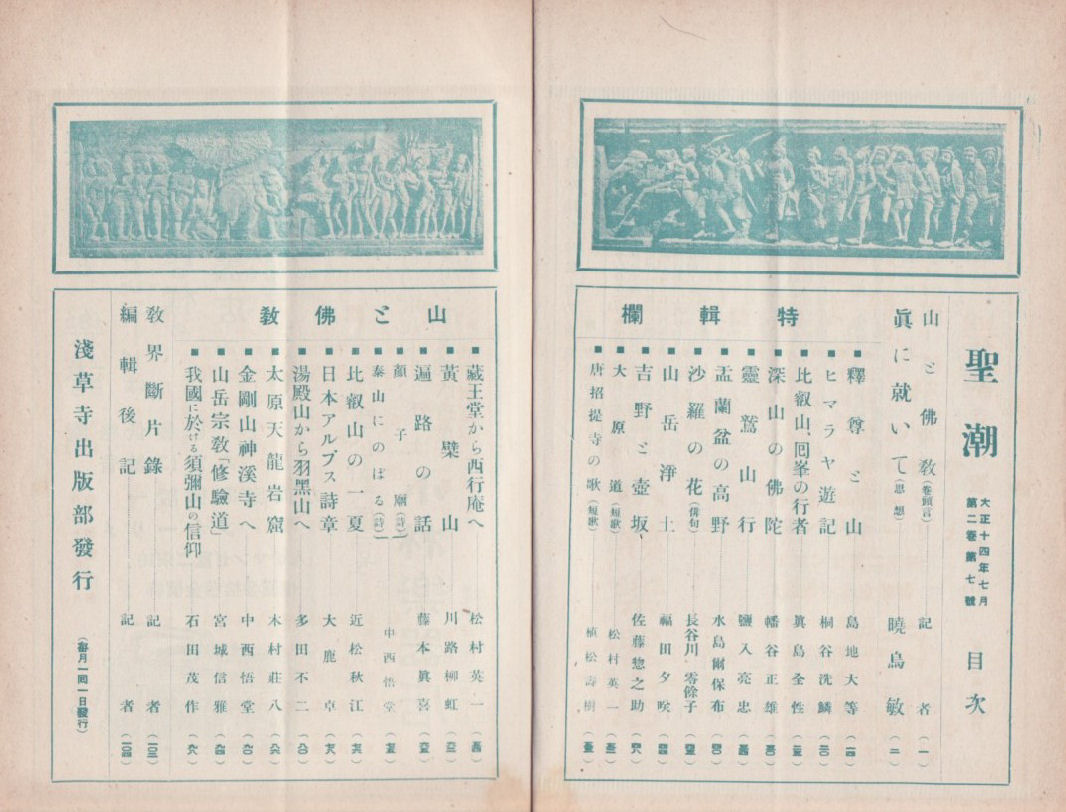 聖潮 目次
大正十四年七月
第二卷第七號
山と佛敎(卷頭言) 記者(一)
眞に就いて(思想) 曉烏敏(二)
特輯欄
■釋尊と山 島地大等(一四)
■ヒマラヤ遊記 桐谷洗鱗
■比叡山、囘峯の行者 眞島全性
■深山の佛陀 幡谷正雄
■靈鷲山行 鹽入亮忠
■盂蘭盆の高野 水島爾保布
■沙羅の花(俳句) 長谷川零餘子
■山岳淨土 福田夕咲
■吉野と壺坂 佐藤惣之助
■大原道(短歌) 松村英一
■唐招提寺の歌(短歌) 植松壽樹
山と佛敎
■藏王堂から西行庵へ 松村英一
■黃檗山 川路柳虹
■遍路の話 藤本眞喜
■顏子廟(詩)
■泰山にのぼる(詩) 中西悟堂
■比叡山の一夏 近松秋江
■日本アルプス詩章 大鹿卓
■湯殿山から羽黑山へ 多田不二
■太原天龍岩窟 木村莊八
■金剛山神溪寺へ 中西悟堂
■山岳宗敎「修驗道」 宮城信雅
■我國に於ける須彌山の信仰 石田茂作
敎界斷片錄 記者
編輯後記 記者
淺草寺出版部發行
(每月一囘一日發行)